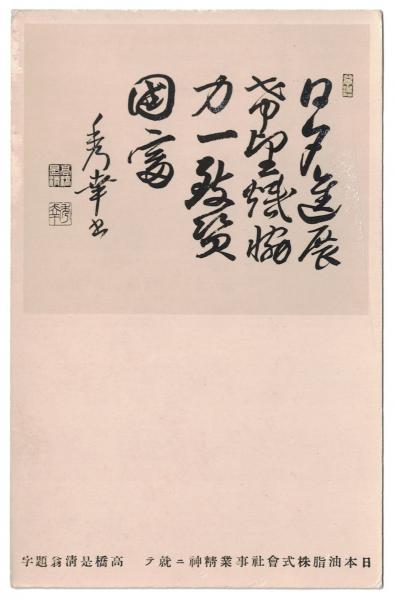 日夕進展
希望熾協
力一致資
國富
秀幸書
日本油脂株式會社事業精神ニ就テ 高橋是清翁題字